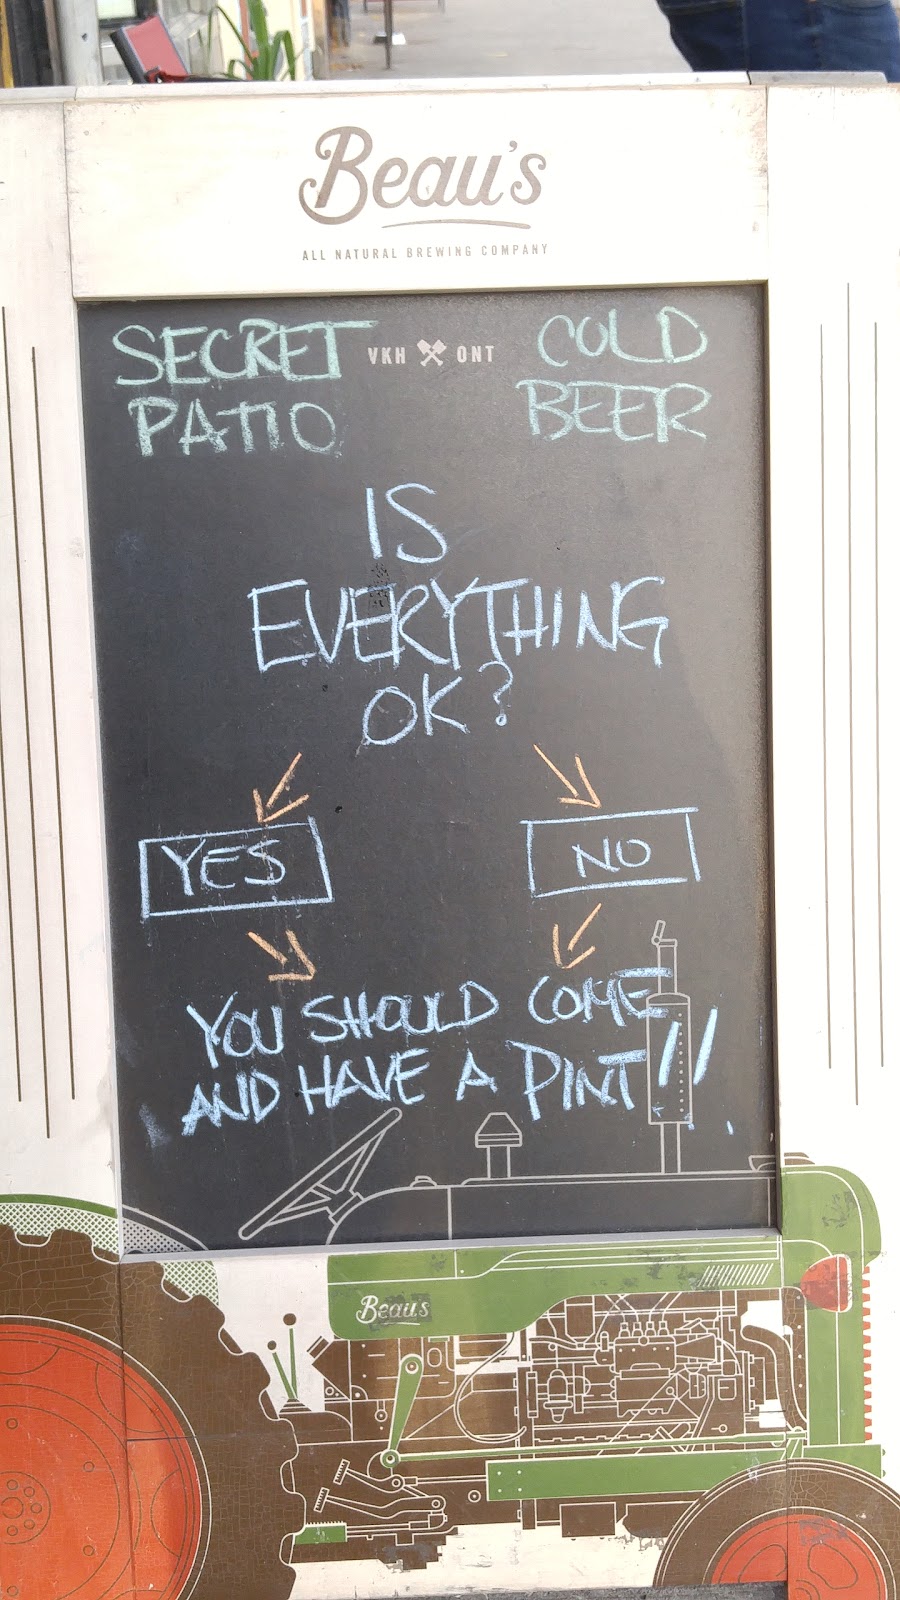 Beau's
ALL NATURAL BREWING COMPANY
SECRET
PATIO
VKH ONT
COLD
BEER
IS
EVERYTHING
OK?
YES
NO
YOU SHOULD COME
AND HAVE A PINT!!
Beau's